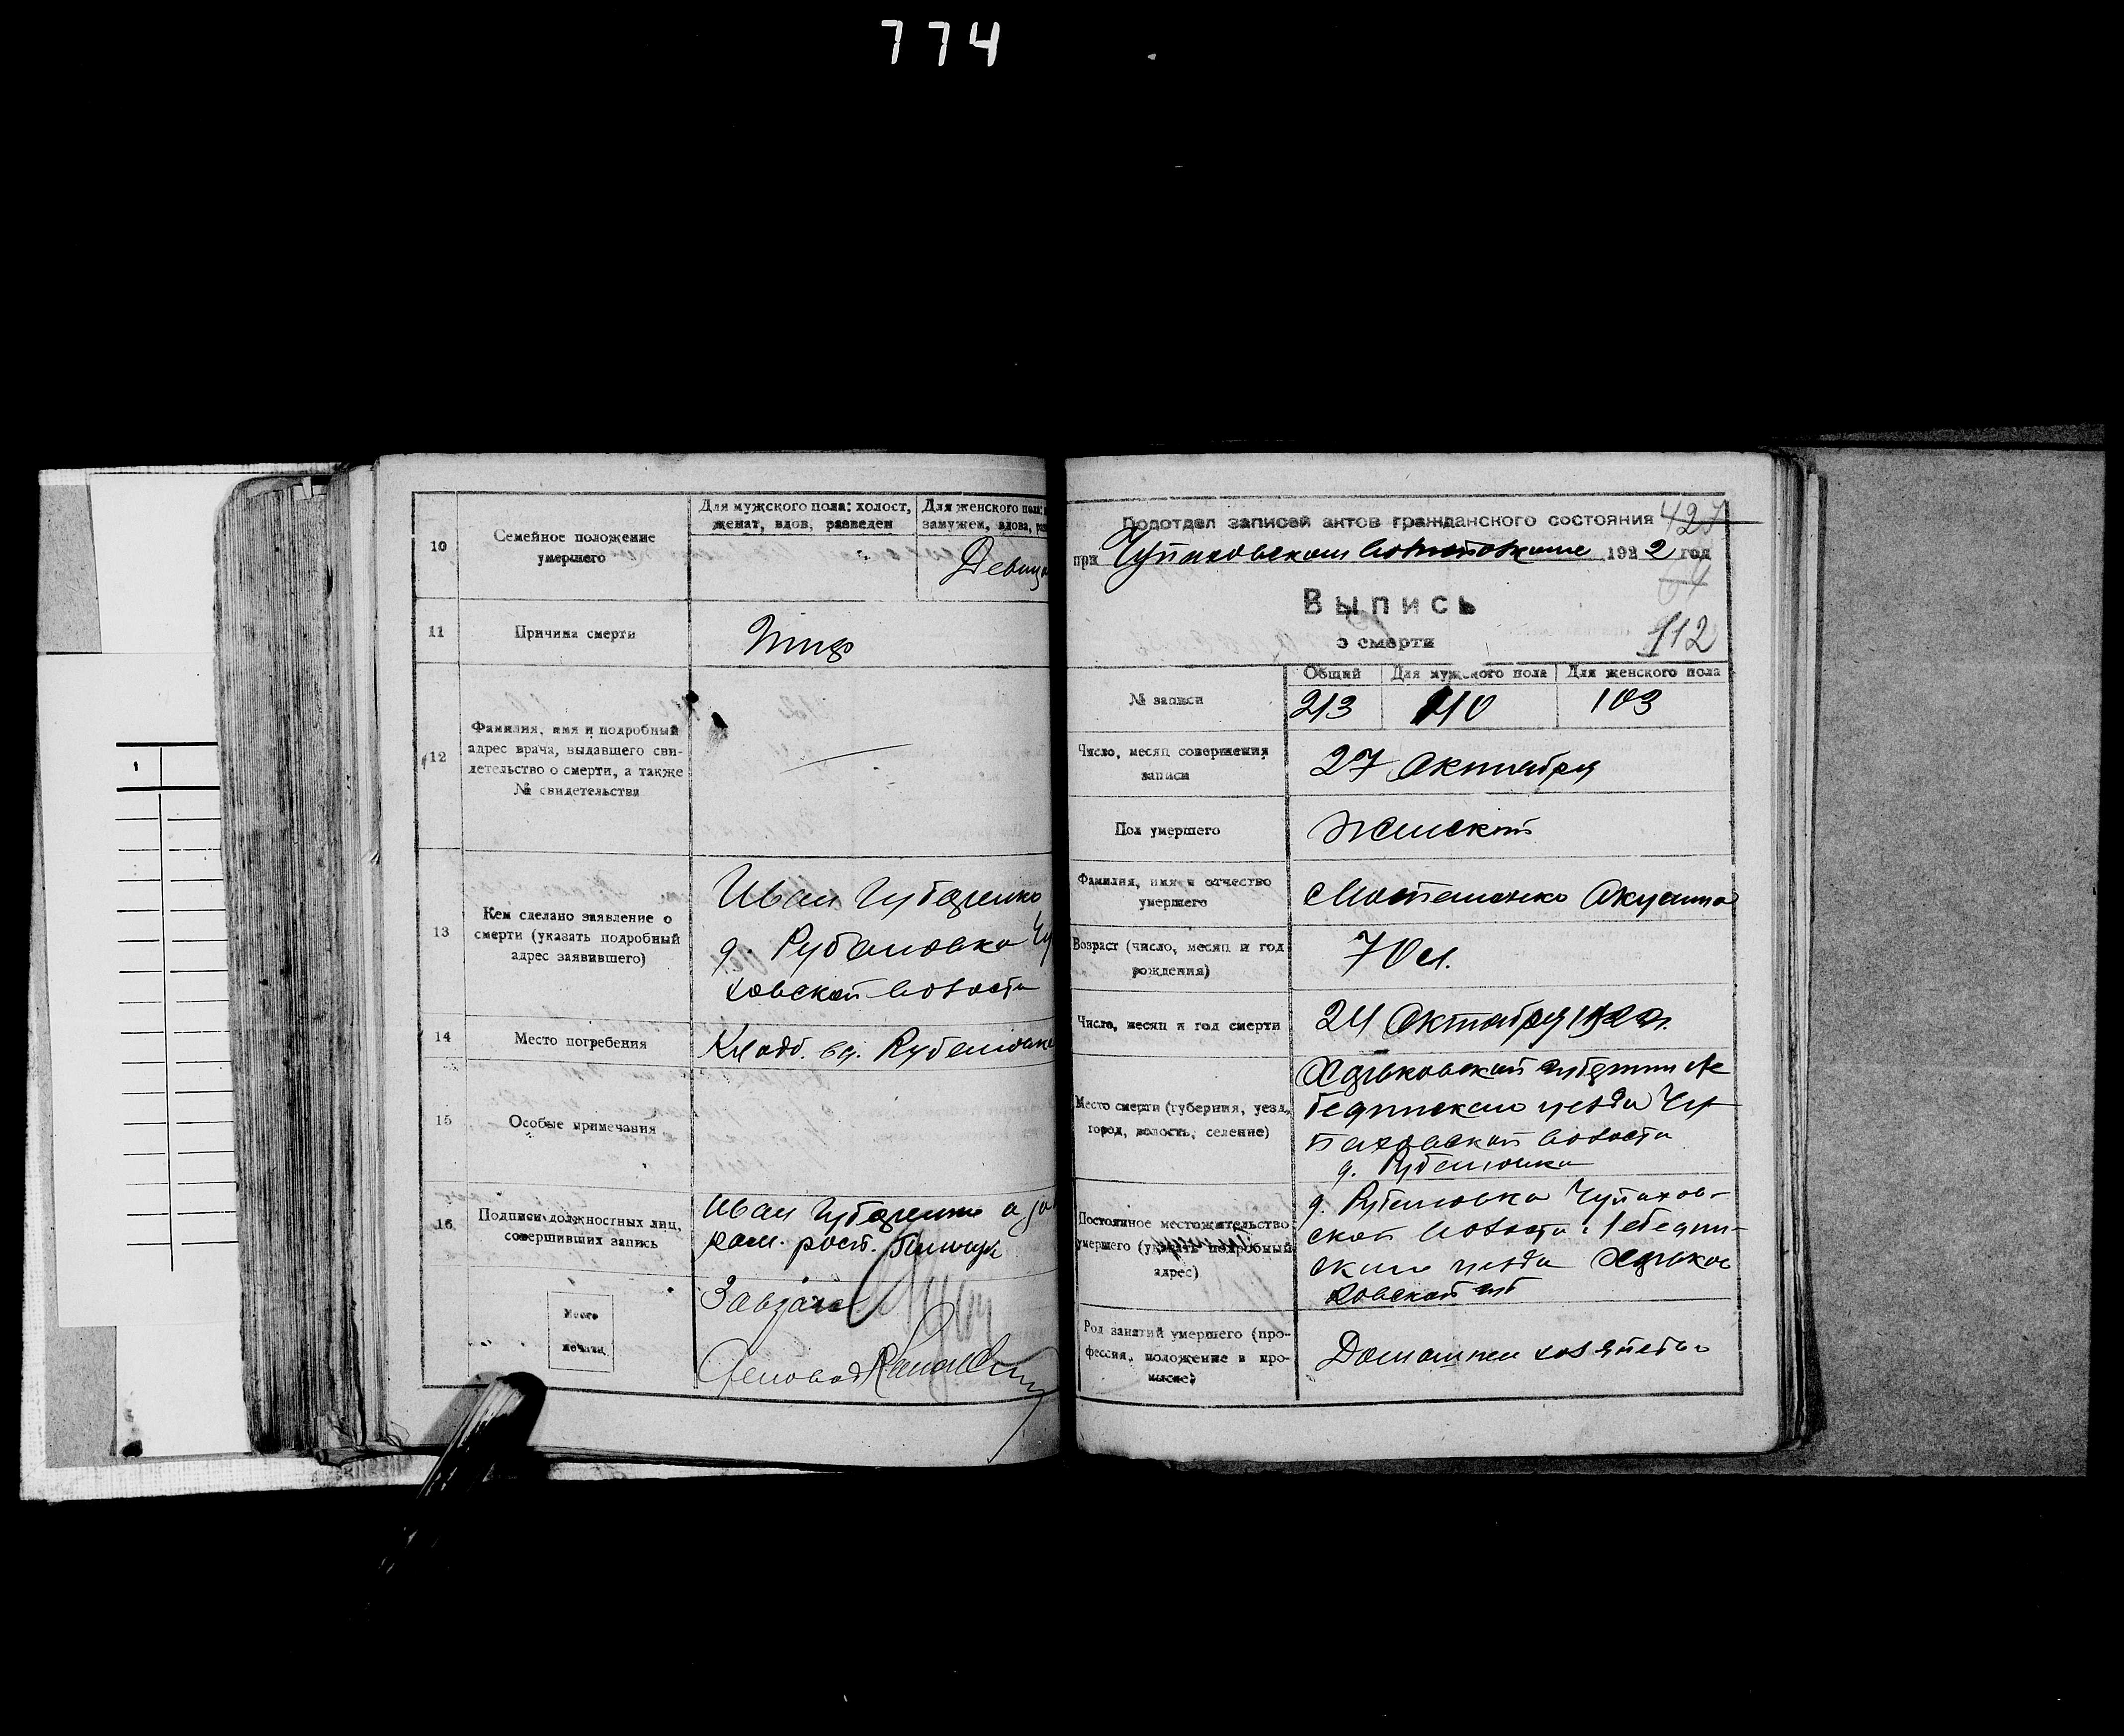 774
10
Семейное положение
умершего
Для мужского пола: холост,
женат, вдов, разведен
Для женского пола:
замужем, вдова,
Девица
11
Причина смерти
Тиф
12
Фамилия, имя и подробный
адрес врача, выдавшего сви-
детельство о смерти, а также
№ свидетельства
13
Кем сделано заявление о
смерти (указать подробный
адрес заявившего)
Иван Губаренко
д. Рубановка Чу
ховской волости
14
Место погребения
Кладб. в д. Рубановке
15
Особые примечания
16
Подписи должностных лиц,
совершивших запись
Иван Губаренко а за
рост.
Место
печати
Завзагс
427
Подотдел записей актов гражданского состояния
при Чупаховском 1922 год
64
Выпись
о смерти
112
№ записи
Общий
Для мужского пола
Для женского пола
213
110
103
Число, месяц совершения
записи
27 Октября
Пол умершего
Женский
Фамилия, имя и отчество
умершего
Акулина
Возраст (число, месяц и год
рождения)
70 л.
Число, месяц и год смерти
24 Октября 1922 г.
Место смерти (губерния, уезд,
город, волость, селение)
Харьковской губернии Ле
бединского уезда Чу
паховской волости
д. Рубановка
Постоянное местожительство
умершего (указать подробный
адрес)
д. Рубановка Чупахов-
ской волости Лебедин-
ского уезда Харько
ковской губ
Род занятий умершего (про-
фессия, положение в про-
мысле)
Домашнее хозяйство